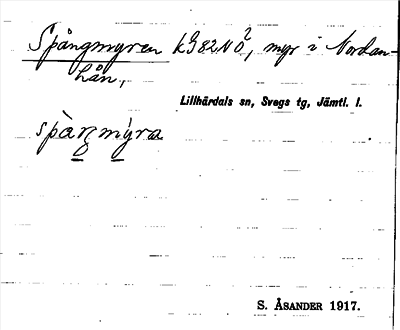 Spångmyren kG82NÖ?, myr i Nordan-
hån,
Lillhärdals sn, Svegs tg, Jämtl. l.
spàŋmy̍ra
S. ÅSANDER 1917.